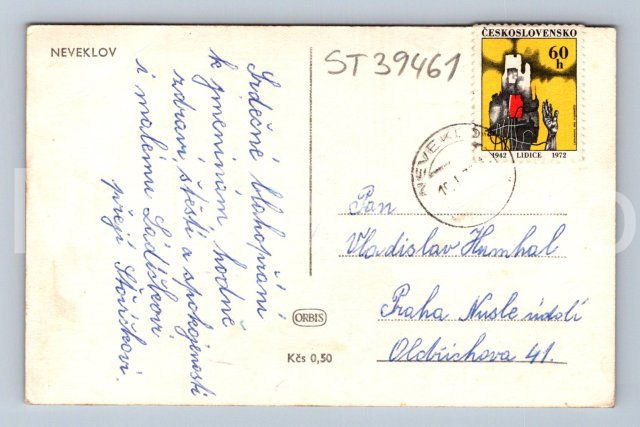 NEVEKLOV
ST 39461
ČESKOSLOVENSKO
60
h
1942 LIDICE 1972
NEVEKLOV
Srdečné blahopřání
k jmeninám, hodně
zdraví, štěstí a spokojenosti
i malému Ládíčkovi
přejí
Pan
Vladislav Humhal
Praha Nusle údolí
Oldřichova 41.
ORBIS
Kčs 0,50